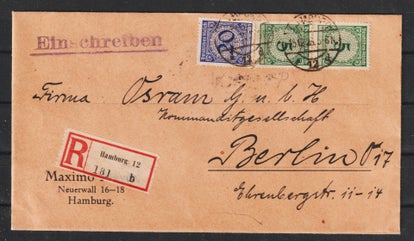 Einschreiben
20
5
5
Firma Osram G. m. b. H
Kommanditgesellschaft
Berlin O17
Ehrenbergstr. 11-14
R
Hamburg. 12
181 b
Maximo
Neuerwall 16-18
Hamburg.